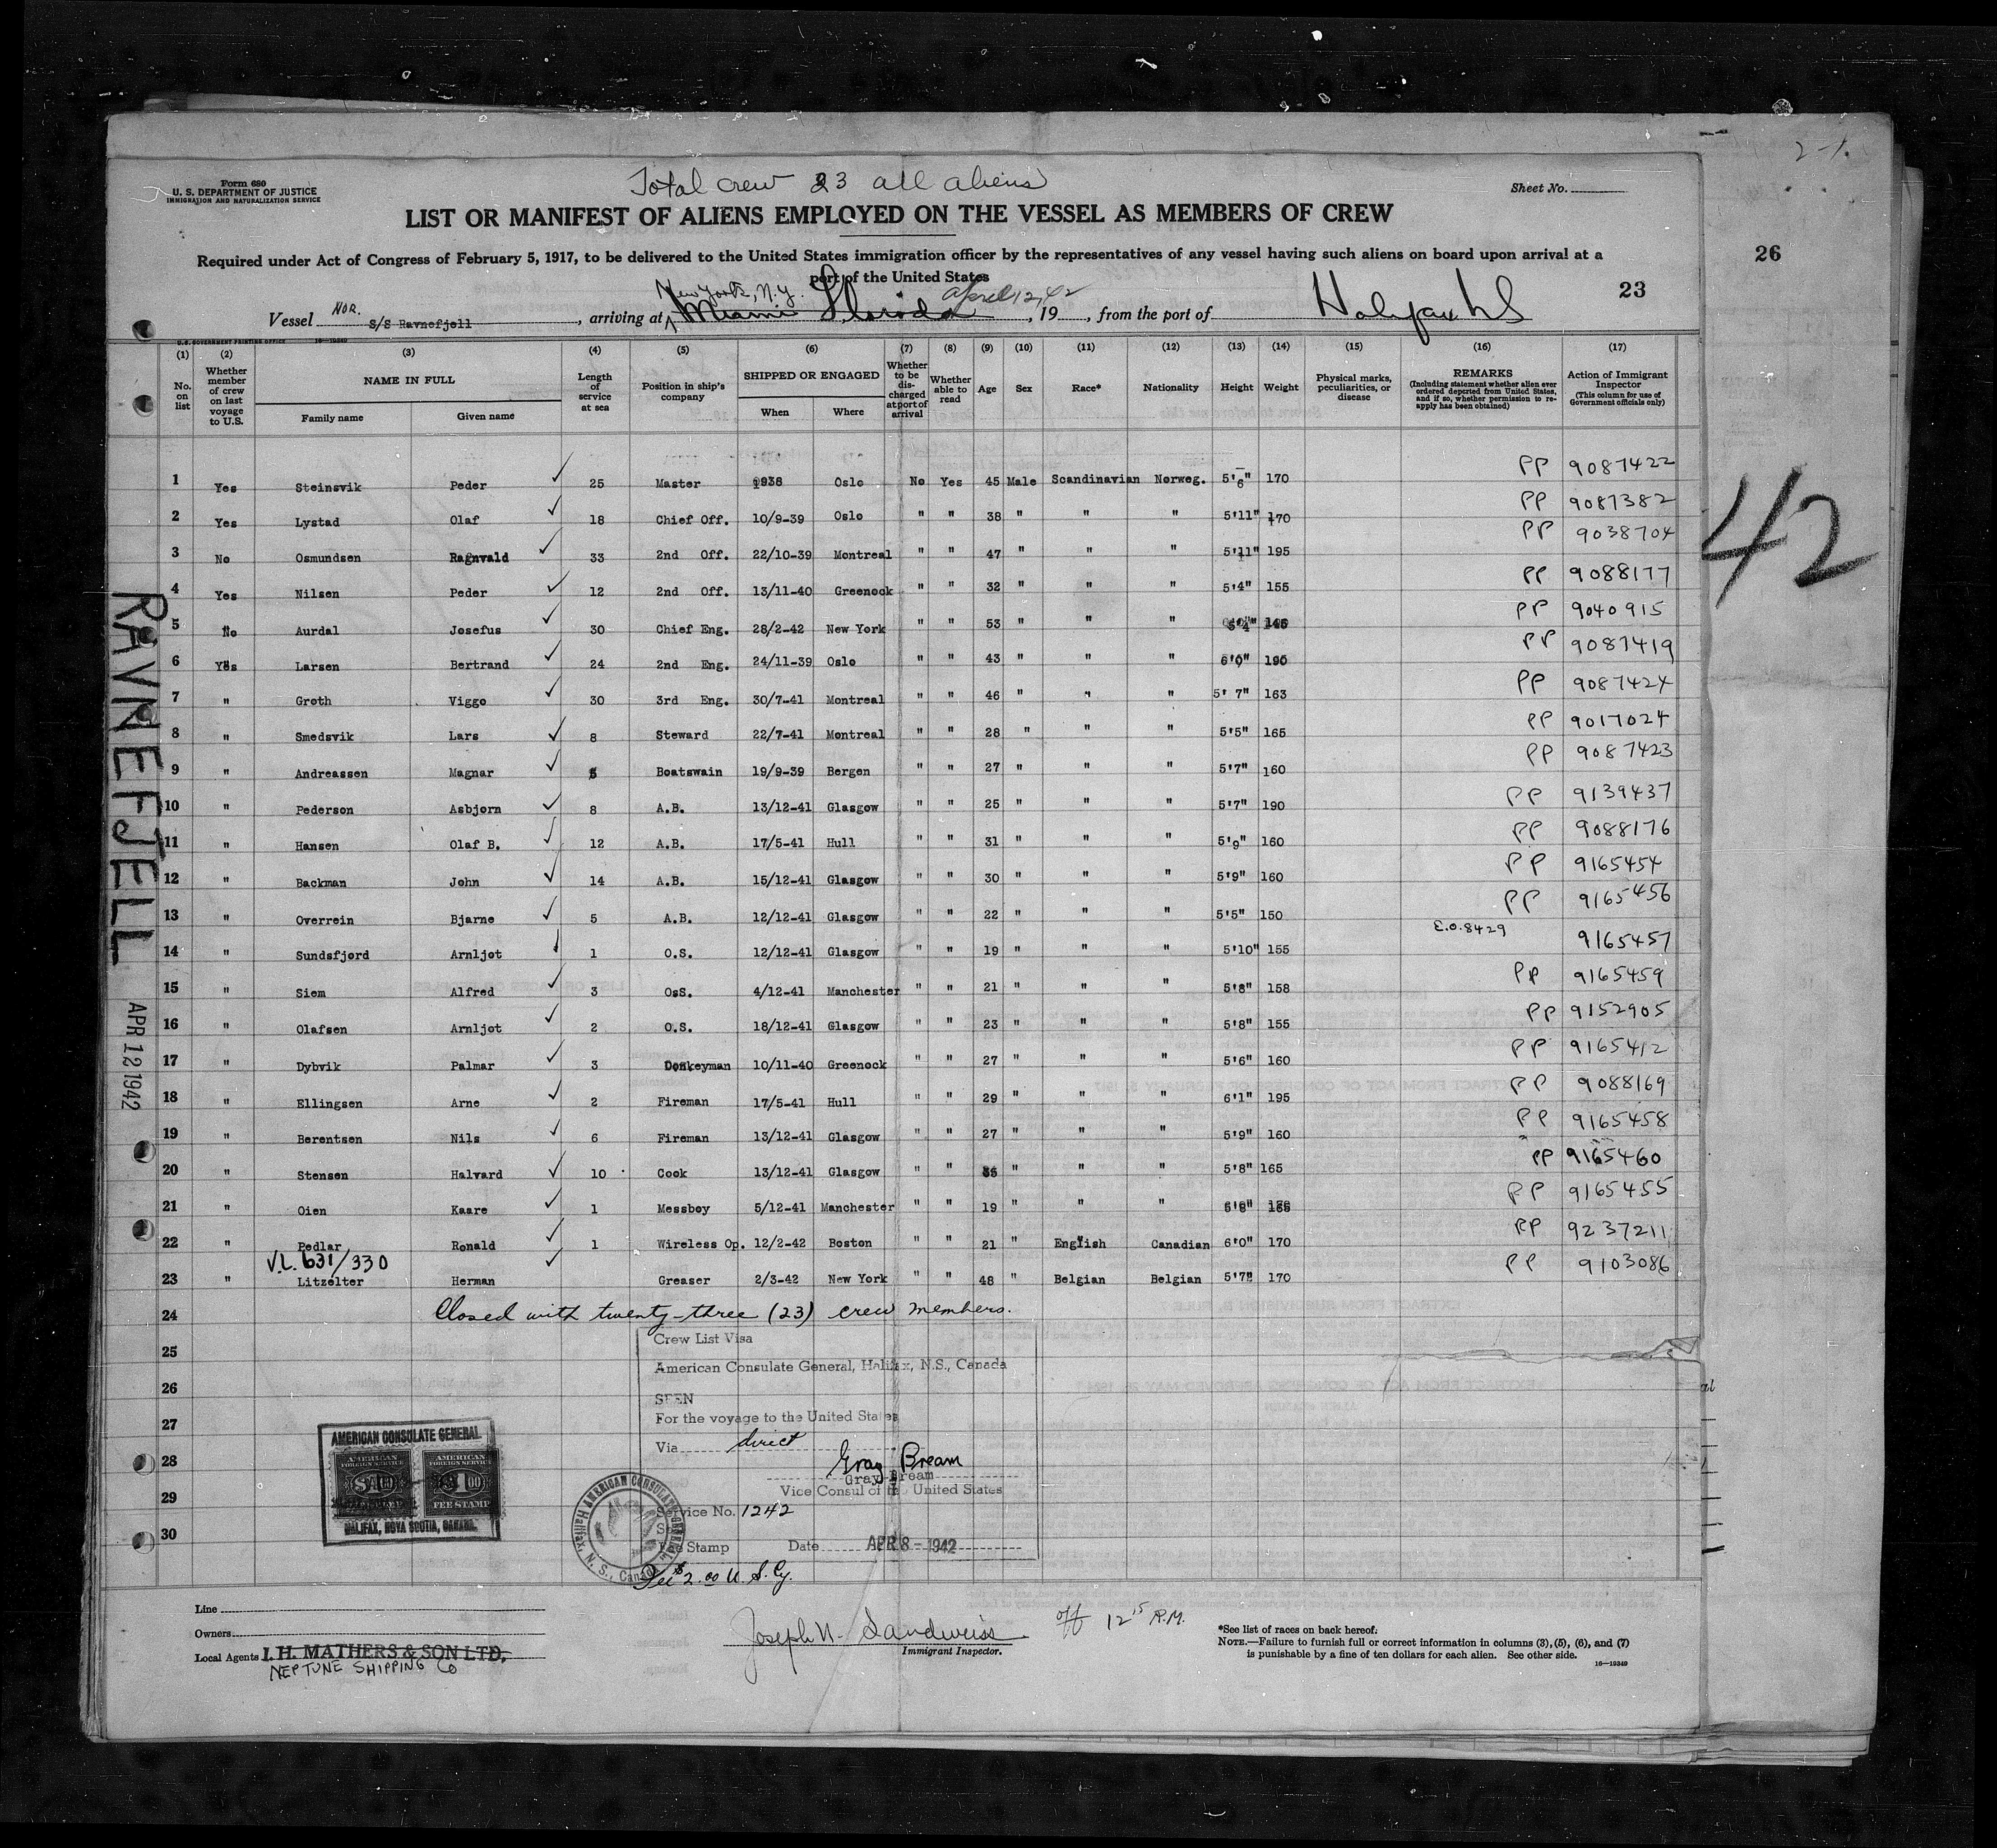 2-1.
Form 680
U. S. DEPARTMENT OF JUSTICE
IMMIGRATION AND NATURALIZATION SERVICE
Total crew 23 all aliens
Sheet No.
LIST OR MANIFEST OF ALIENS EMPLOYED ON THE VESSEL AS MEMBERS OF CREW
Required under Act of Congress of February 5, 1917, to be delivered to the United States immigration officer by the representatives of any vessel having such aliens on board upon arrival at a
port of the United States
26
23
New York, N.Y. April 12, 42
Vessel NOR. S/S Ravnefjell, arriving at Miami Florida, 19, from the port of Halifax NS
U.S. GOVERNMENT PRINTING OFFICE 16—19349
(1) (2) (3) (4) (5) (6) (7) (8) (9) (10) (11) (12) (13) (14) (15) (16) (17)
No. on list
Whether member of crew on last voyage to U.S.
NAME IN FULL
Family name Given name
Length of service at sea
Position in ship's company
SHIPPED OR ENGAGED
When Where
Whether to be discharged at port of arrival
Whether able to read
Age Sex Race* Nationality Height Weight
Physical marks, peculiarities, or disease
REMARKS
(Including statement whether alien ever ordered deported from United States, and if so, whether permission to reapply has been obtained)
Action of Immigrant Inspector
(This column for use of Government officials only)
1 Yes Steinsvik Peder ✓ 25 Master 1938 Oslo No Yes 45 Male Scandinavian Norweg. 5'6" 170 PP 9087422
2 Yes Lystad Olaf ✓ 18 Chief Off. 10/9-39 Oslo " " 38 " " " 5'11" 170 PP 9087382
3 No Osmundsen Ragnvald ✓ 33 2nd Off. 22/10-39 Montreal " " 47 " " " 5'11" 195 PP 9038704
4 Yes Nilsen Peder ✓ 12 2nd Off. 13/11-40 Greenock " " 32 " " " 5'4" 155 PP 9088177
5 No Aurdal Josefus ✓ 30 Chief Eng. 28/2-42 New York " " 53 " " " PP 9040915
6 Yes Larsen Bertrand ✓ 24 2nd Eng. 24/11-39 Oslo " " 43 " " " 6'0" 190 PP 9087419
7 " Groth Viggo ✓ 30 3rd Eng. 30/7-41 Montreal " " 46 " " " 5' 7" 163 PP 9087424
8 " Smedsvik Lars ✓ 8 Steward 22/7-41 Montreal " " 28 " " " 5'5" 165 PP 9017024
9 " Andreassen Magnar ✓ 5 Boatswain 19/9-39 Bergen " " 27 " " " 5'7" 160 PP 9087423
10 " Pederson Asbjorn ✓ 8 A.B. 13/12-41 Glasgow " " 25 " " " 5'7" 190 PP 9139437
11 " Hansen Olaf B. ✓ 12 A.B. 17/5-41 Hull " " 31 " " " 5'9" 160 PP 9088176
12 " Backman John ✓ 14 A.B. 15/12-41 Glasgow " " 30 " " " 5'9" 160 PP 9165454
13 " Overrein Bjarne ✓ 5 A.B. 12/12-41 Glasgow " " 22 " " " 5'5" 150 PP 9165456
14 " Sundsfjord Arnljot ✓ 1 O.S. 12/12-41 Glasgow " " 19 " " " 5'10" 155 E.O. 8429 9165457
15 " Siem Alfred ✓ 3 OsS. 4/12-41 Manchester " " 21 " " " 5'8" 158 PP 9165459
16 " Olafsen Arnljot ✓ 2 O.S. 18/12-41 Glasgow " " 23 " " " 5'8" 155 PP 9152905
17 " Dybvik Palmar ✓ 3 Donkeyman 10/11-40 Greenock " " 27 " " " 5'6" 160 PP 9165412
18 " Ellingsen Arne ✓ 2 Fireman 17/5-41 Hull " " 29 " " " 6'1" 195 PP 9088169
19 " Berentsen Nils ✓ 6 Fireman 13/12-41 Glasgow " " 27 " " " 5'9" 160 PP 9165458
20 " Stensen Halvard ✓ 10 Cook 13/12-41 Glasgow " " " " " 5'8" 165 PP 9165460
21 " Oien Kaare ✓ 1 Messboy 5/12-41 Manchester " " 19 " " " PP 9165455
22 " Pedlar Ronald ✓ 1 Wireless Op. 12/2-42 Boston " " 21 " English Canadian 6'0" 170 PP 9237211
V.L. 631/330
23 " Litzelter Herman ✓ Greaser 2/3-42 New York " " 48 " Belgian Belgian 5'7" 170 PP 9103086
24 Closed with twenty-three (23) crew members.
25
26
27
28
29
30
42
RAVNEFJELL
APR 12 1942
Crew List Visa
American Consulate General, Halifax, N.S., Canada
SEEN
For the voyage to the United States
Via direct
Gray Bream
Gray Bream
Vice Consul of the United States
Service No. 1242
Fee Stamp Date APR 8 - 1942
Fee $2.00 U. S. Cy.
AMERICAN CONSULATE GENERAL
AMERICAN FOREIGN SERVICE AMERICAN FOREIGN SERVICE
$1.00 $1.00
FEE STAMP
HALIFAX, NOVA SCOTIA, CANADA.
AMERICAN CONSULATE GENERAL
Halifax, N. S., Canada
Line
Owners
Local Agents I. H. MATHERS & SON LTD.
NEPTUNE SHIPPING Co
Joseph N. Sandweiss
Immigrant Inspector.
off 12 15 P.M.
*See list of races on back hereof.
NOTE.—Failure to furnish full or correct information in columns (3), (5), (6), and (7)
is punishable by a fine of ten dollars for each alien. See other side.
16—19349